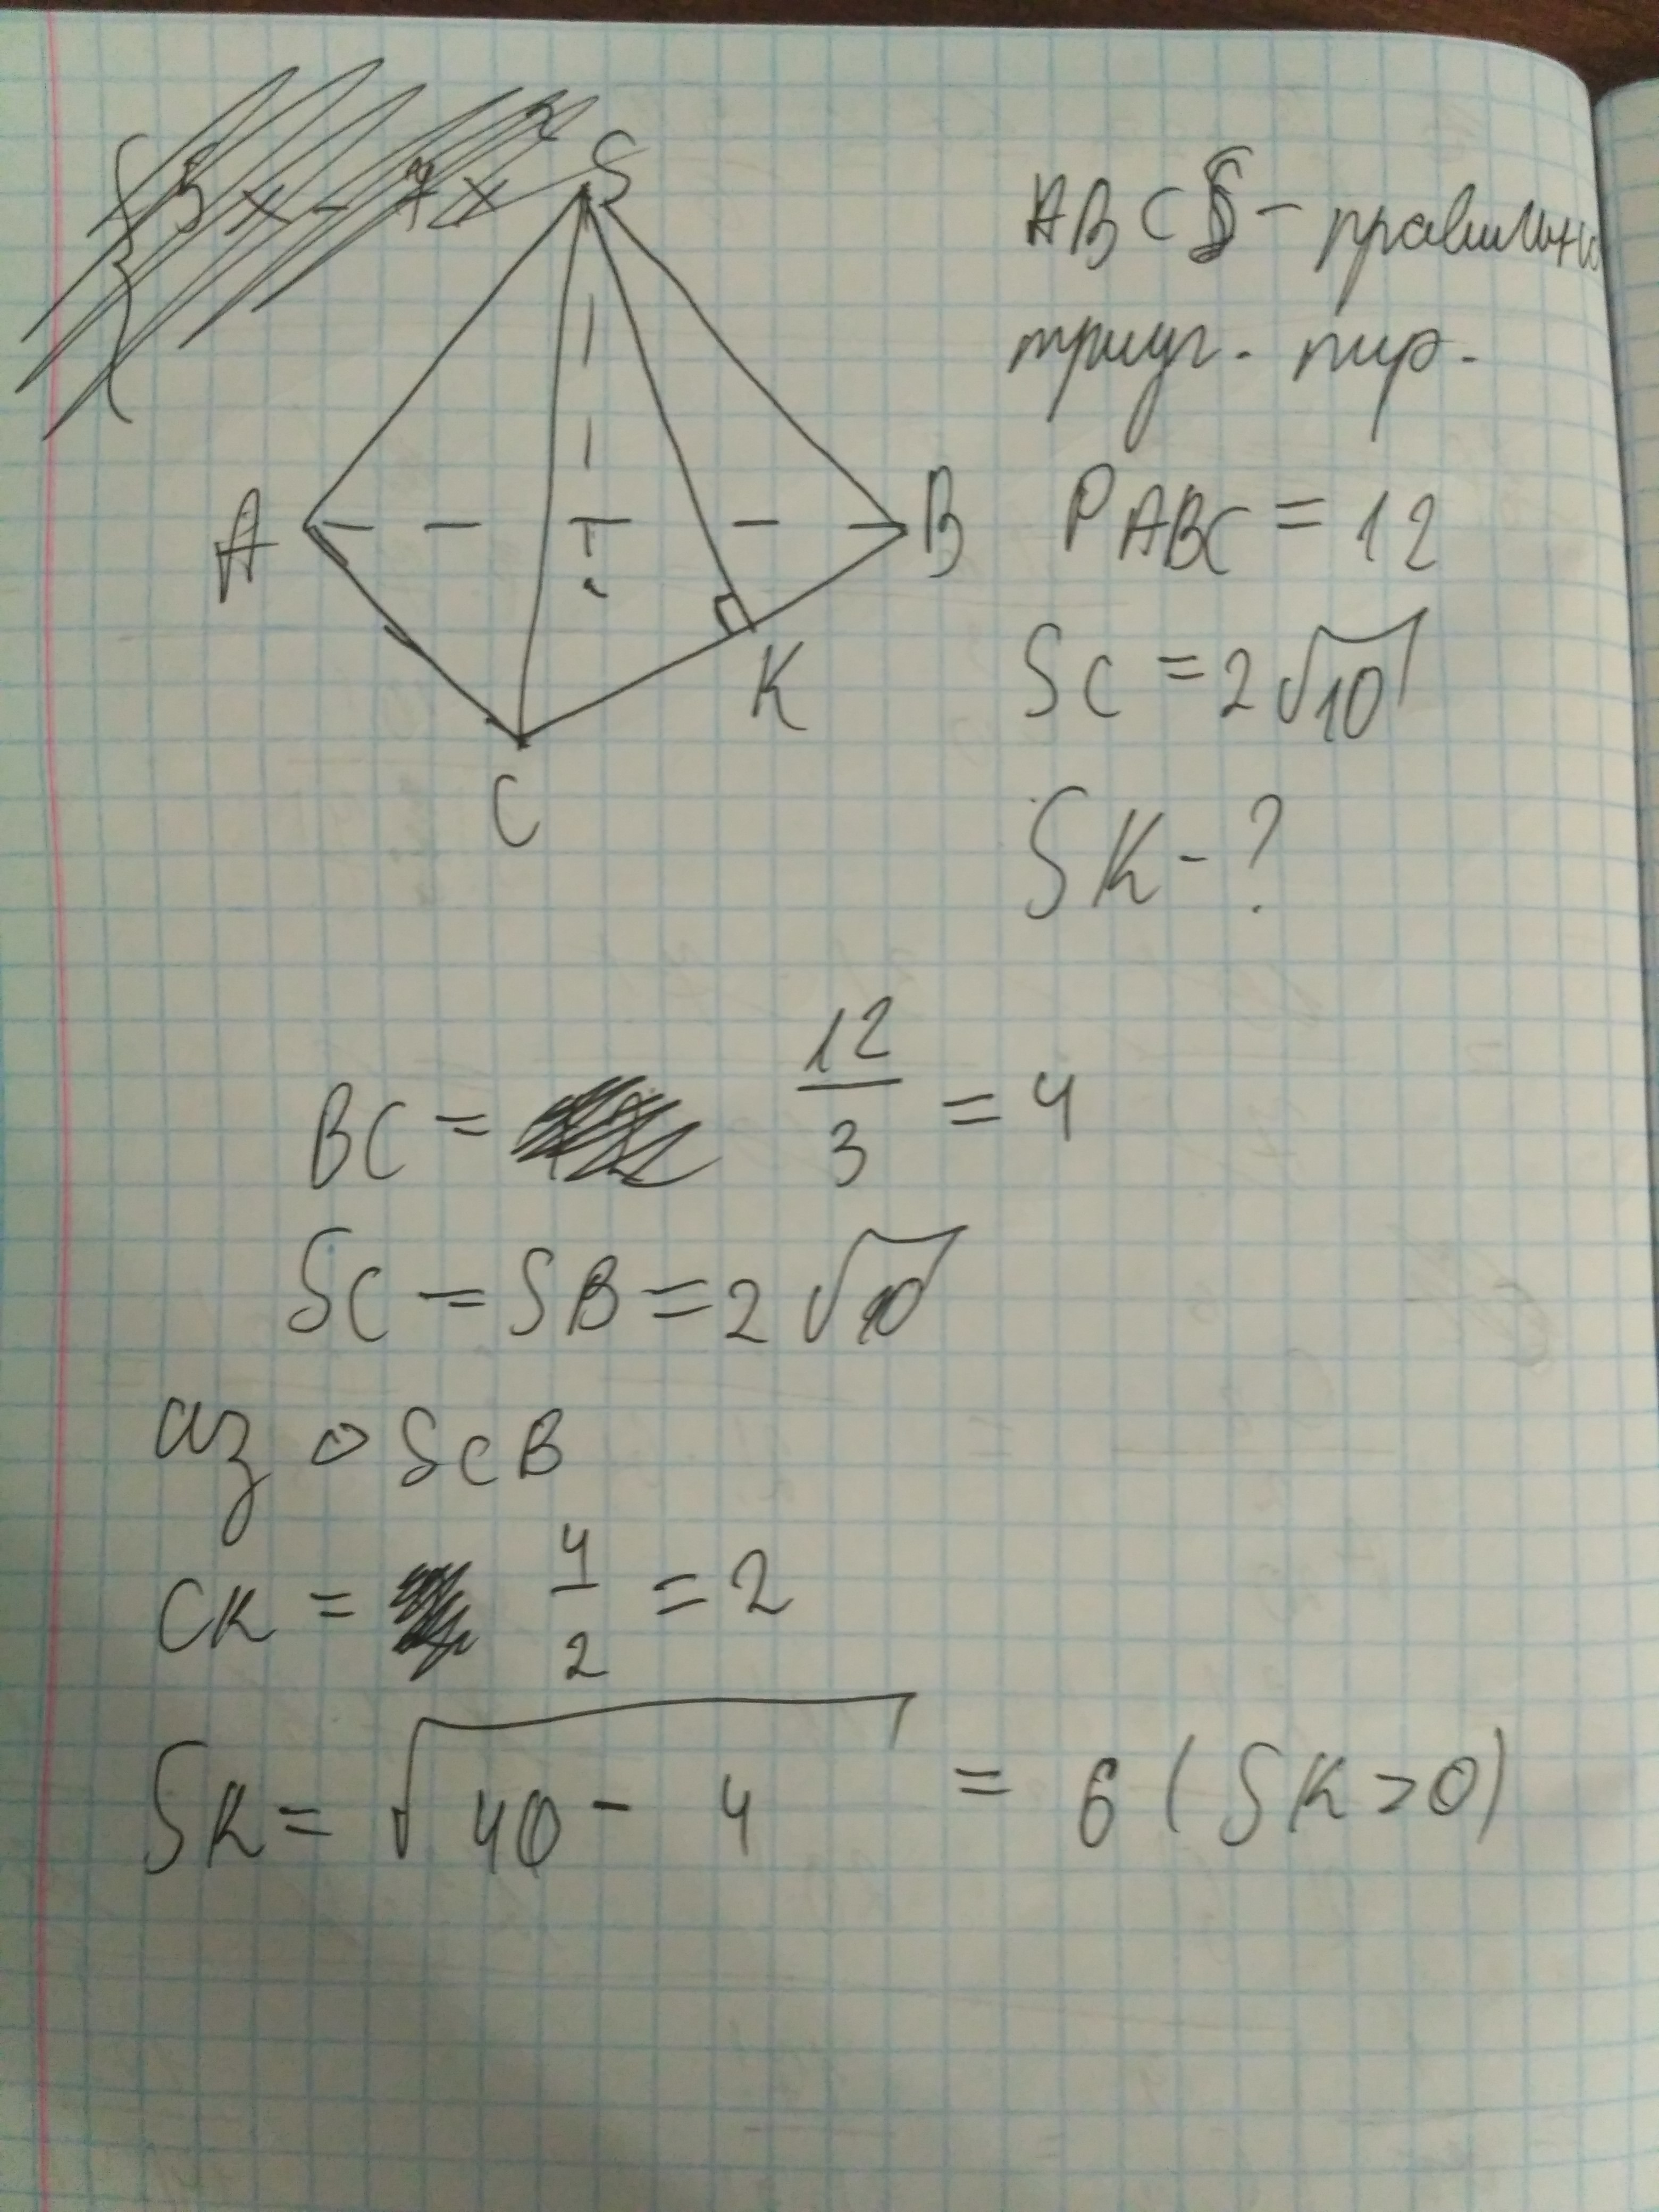 S
ABCS - правильн
триуг. пир.
A
B
P ABC = 12
K
SC = 2√10
C
SK - ?
BC = 12/3 = 4
SC = SB = 2√10
из △ SCB
CK = 4/2 = 2
SK = √40 - 4 = 6 (SK > 0)